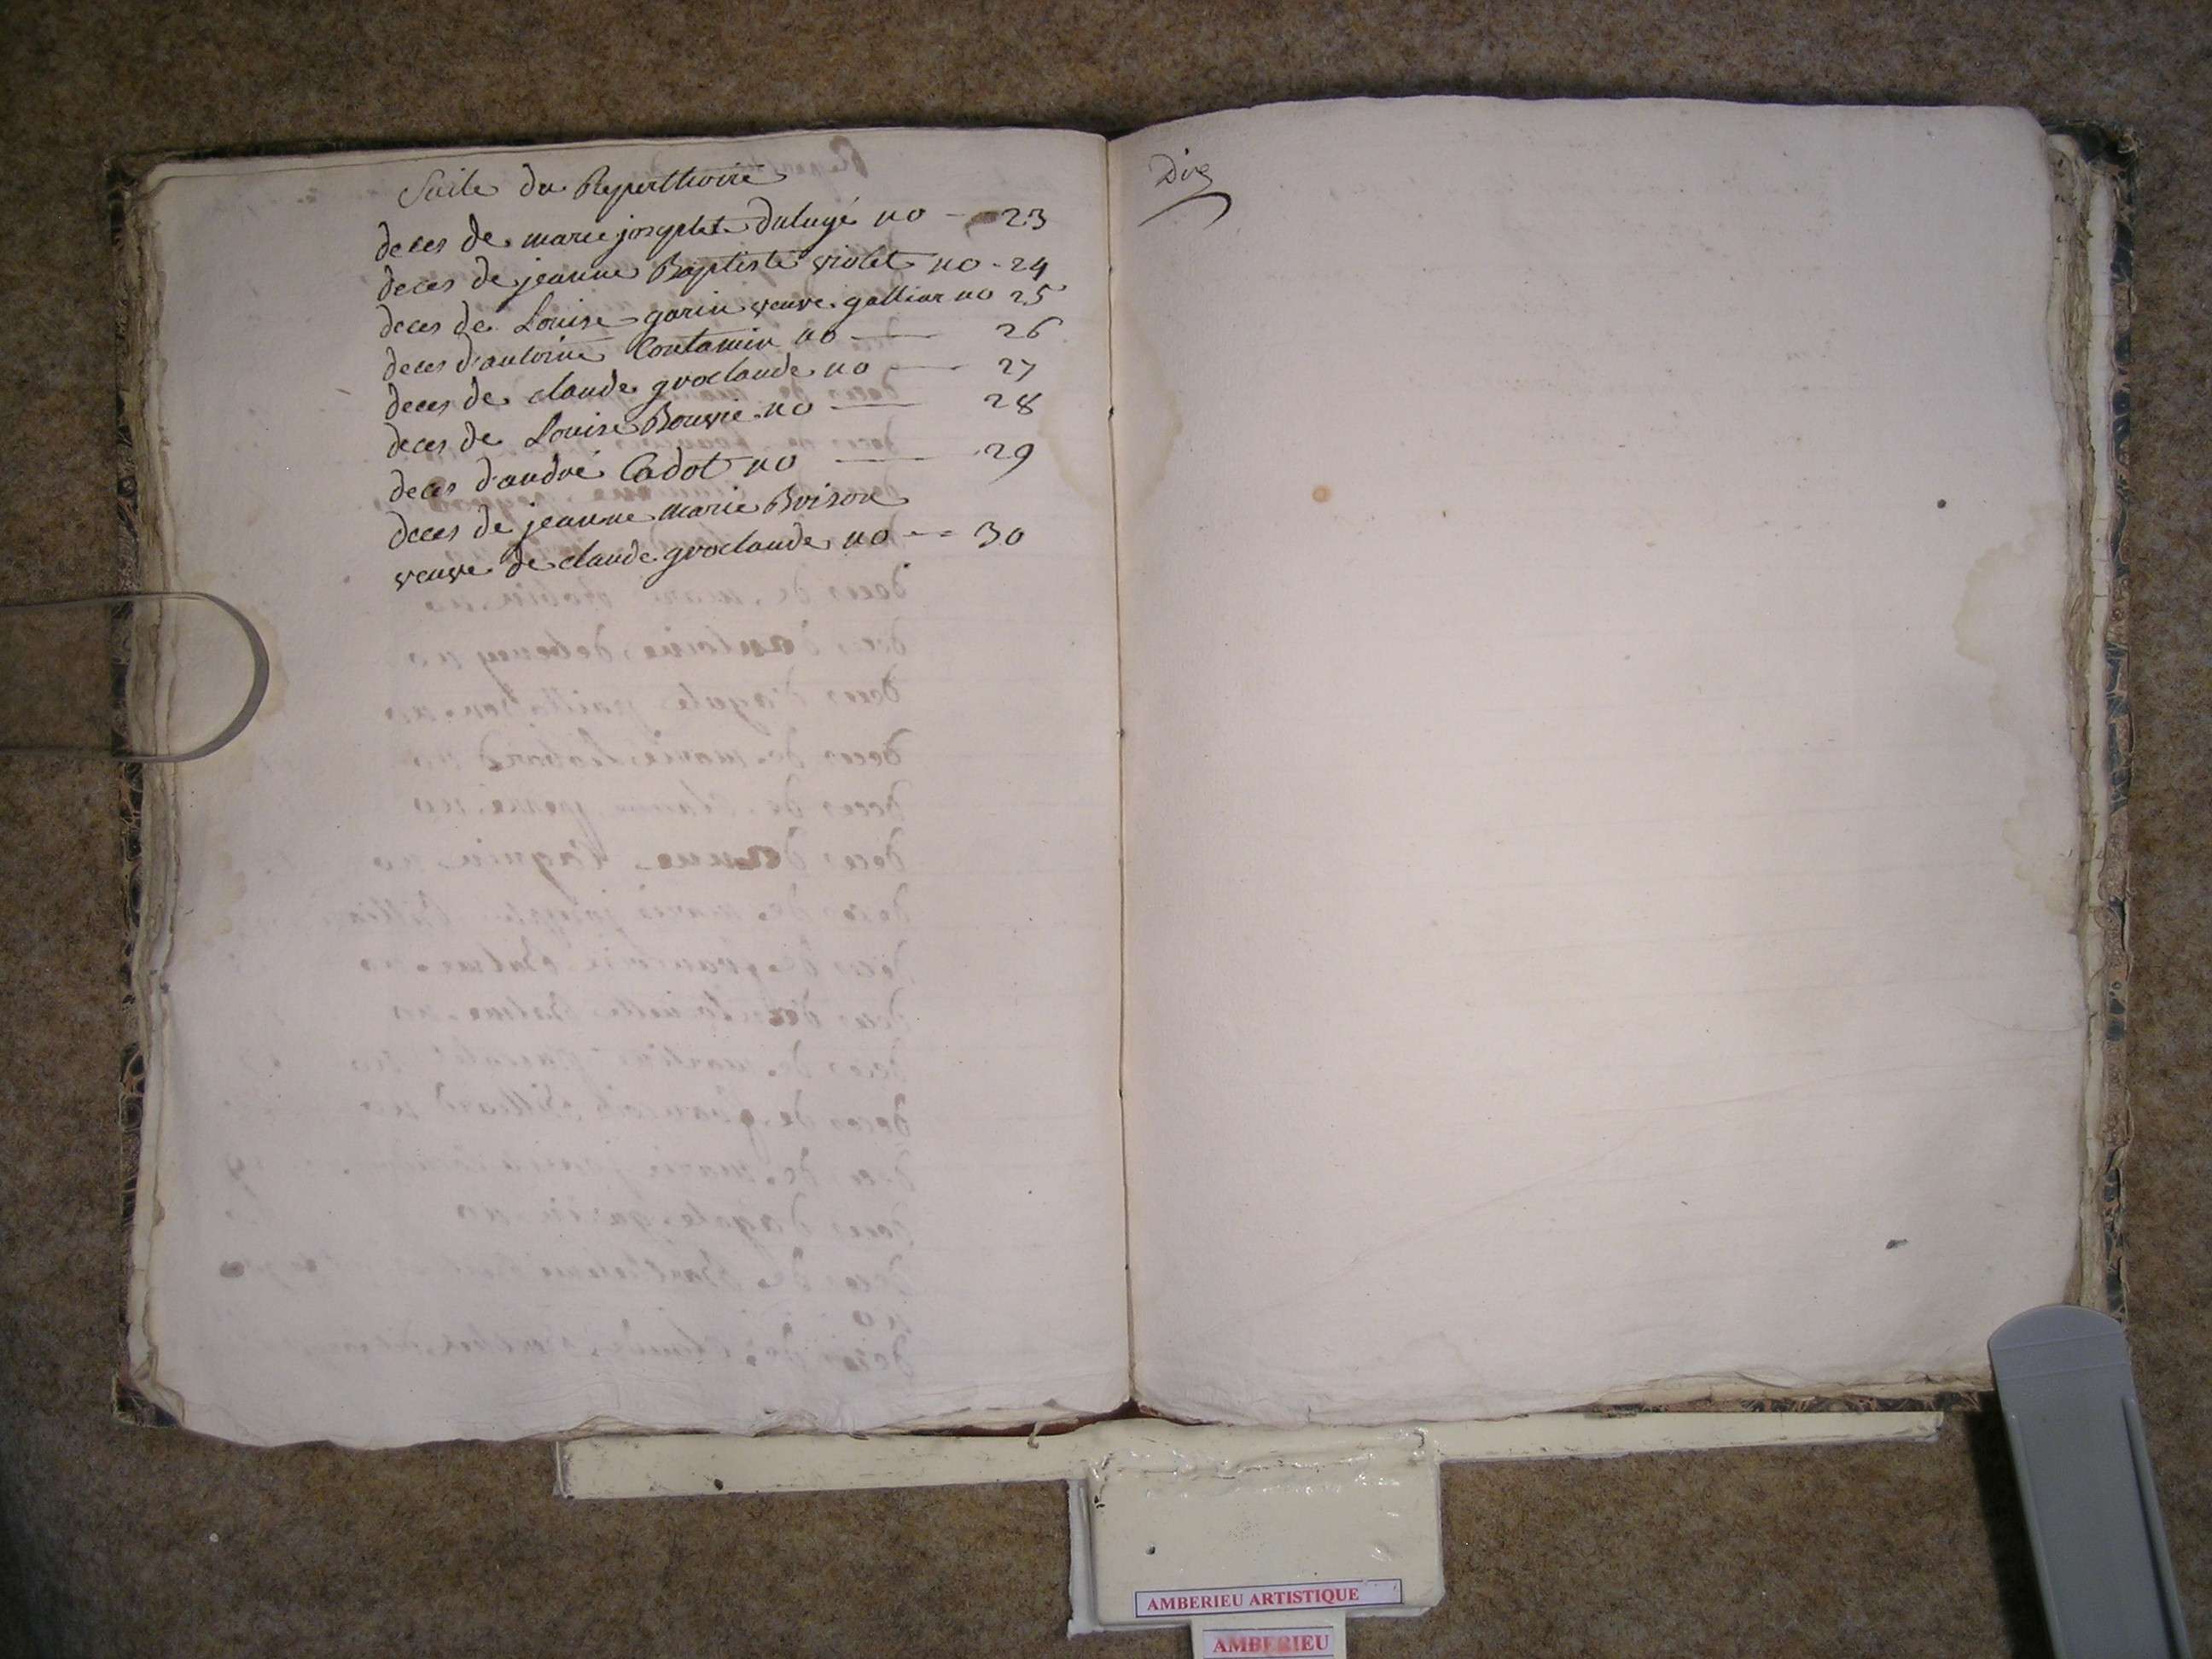 Suite du Reperthoire
deces de marie josephte dulugé no - 23
deces de jeanne Baptiste violet no - 24
deces de Louise garin veuve gallian no 25
deces d'antoine Contamin no — 26
deces de claude groclaude no — 27
deces de Louise Bouvie no — 28
deces d'andré Cadot no — 29
deces de jeanne marie Brison
veuve de claude groclaude no -- 30
Dix
AMBERIEU ARTISTIQUE
AMBERIEU